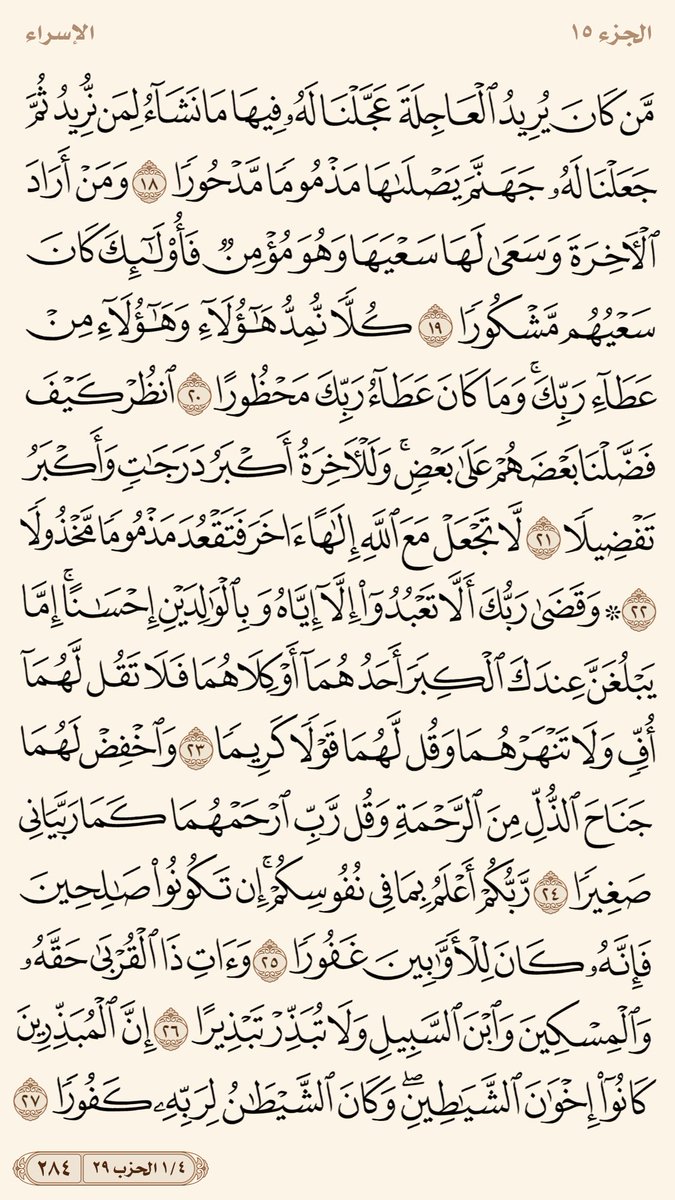 الجزء ١٥
الإسراء
مَّن كَانَ يُرِيدُ ٱلْعَاجِلَةَ عَجَّلْنَا لَهُۥ فِيهَا مَا نَشَآءُ لِمَن نُّرِيدُ ثُمَّ
جَعَلْنَا لَهُۥ جَهَنَّمَ يَصْلَىٰهَا مَذْمُومًا مَّدْحُورًا ١٨ وَمَنْ أَرَادَ
ٱلْأٓخِرَةَ وَسَعَىٰ لَهَا سَعْيَهَا وَهُوَ مُؤْمِنٌ فَأُو۟لَٰٓئِكَ كَانَ
سَعْيُهُم مَّشْكُورًا ١٩ كُلًّا نُّمِدُّ هَٰٓؤُلَآءِ وَهَٰٓؤُلَآءِ مِنْ
عَطَآءِ رَبِّكَۚ وَمَا كَانَ عَطَآءُ رَبِّكَ مَحْظُورًا ٢٠ ٱنظُرْ كَيْفَ
فَضَّلْنَا بَعْضَهُمْ عَلَىٰ بَعْضٍۚ وَلَلْأٓخِرَةُ أَكْبَرُ دَرَجَٰتٍ وَأَكْبَرُ
تَفْضِيلًا ٢١ لَّا تَجْعَلْ مَعَ ٱللَّهِ إِلَٰهًا ءَاخَرَ فَتَقْعُدَ مَذْمُومًا مَّخْذُولًا
٢٢ ۞ وَقَضَىٰ رَبُّكَ أَلَّا تَعْبُدُوٓا۟ إِلَّآ إِيَّاهُ وَبِٱلْوَٰلِدَيْنِ إِحْسَٰنًاۚ إِمَّا
يَبْلُغَنَّ عِندَكَ ٱلْكِبَرَ أَحَدُهُمَآ أَوْ كِلَاهُمَا فَلَا تَقُل لَّهُمَآ
أُفٍّ وَلَا تَنْهَرْهُمَا وَقُل لَّهُمَا قَوْلًا كَرِيمًا ٢٣ وَٱخْفِضْ لَهُمَا
جَنَاحَ ٱلذُّلِّ مِنَ ٱلرَّحْمَةِ وَقُل رَّبِّ ٱرْحَمْهُمَا كَمَا رَبَّيَانِى
صَغِيرًا ٢٤ رَّبُّكُمْ أَعْلَمُ بِمَا فِى نُفُوسِكُمْۚ إِن تَكُونُوا۟ صَٰلِحِينَ
فَإِنَّهُۥ كَانَ لِلْأَوَّٰبِينَ غَفُورًا ٢٥ وَءَاتِ ذَا ٱلْقُرْبَىٰ حَقَّهُۥ
وَٱلْمِسْكِينَ وَٱبْنَ ٱلسَّبِيلِ وَلَا تُبَذِّرْ تَبْذِيرًا ٢٦ إِنَّ ٱلْمُبَذِّرِينَ
كَانُوٓا۟ إِخْوَٰنَ ٱلشَّيَٰطِينِۖ وَكَانَ ٱلشَّيْطَٰنُ لِرَبِّهِۦ كَفُورًا ٢٧
١/٤ الحزب ٢٩
٢٨٤